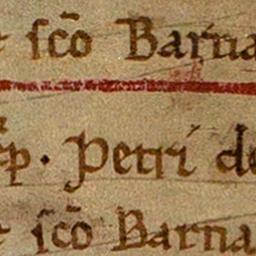 ſcō Barna
p. Petri de
ſcō Barna